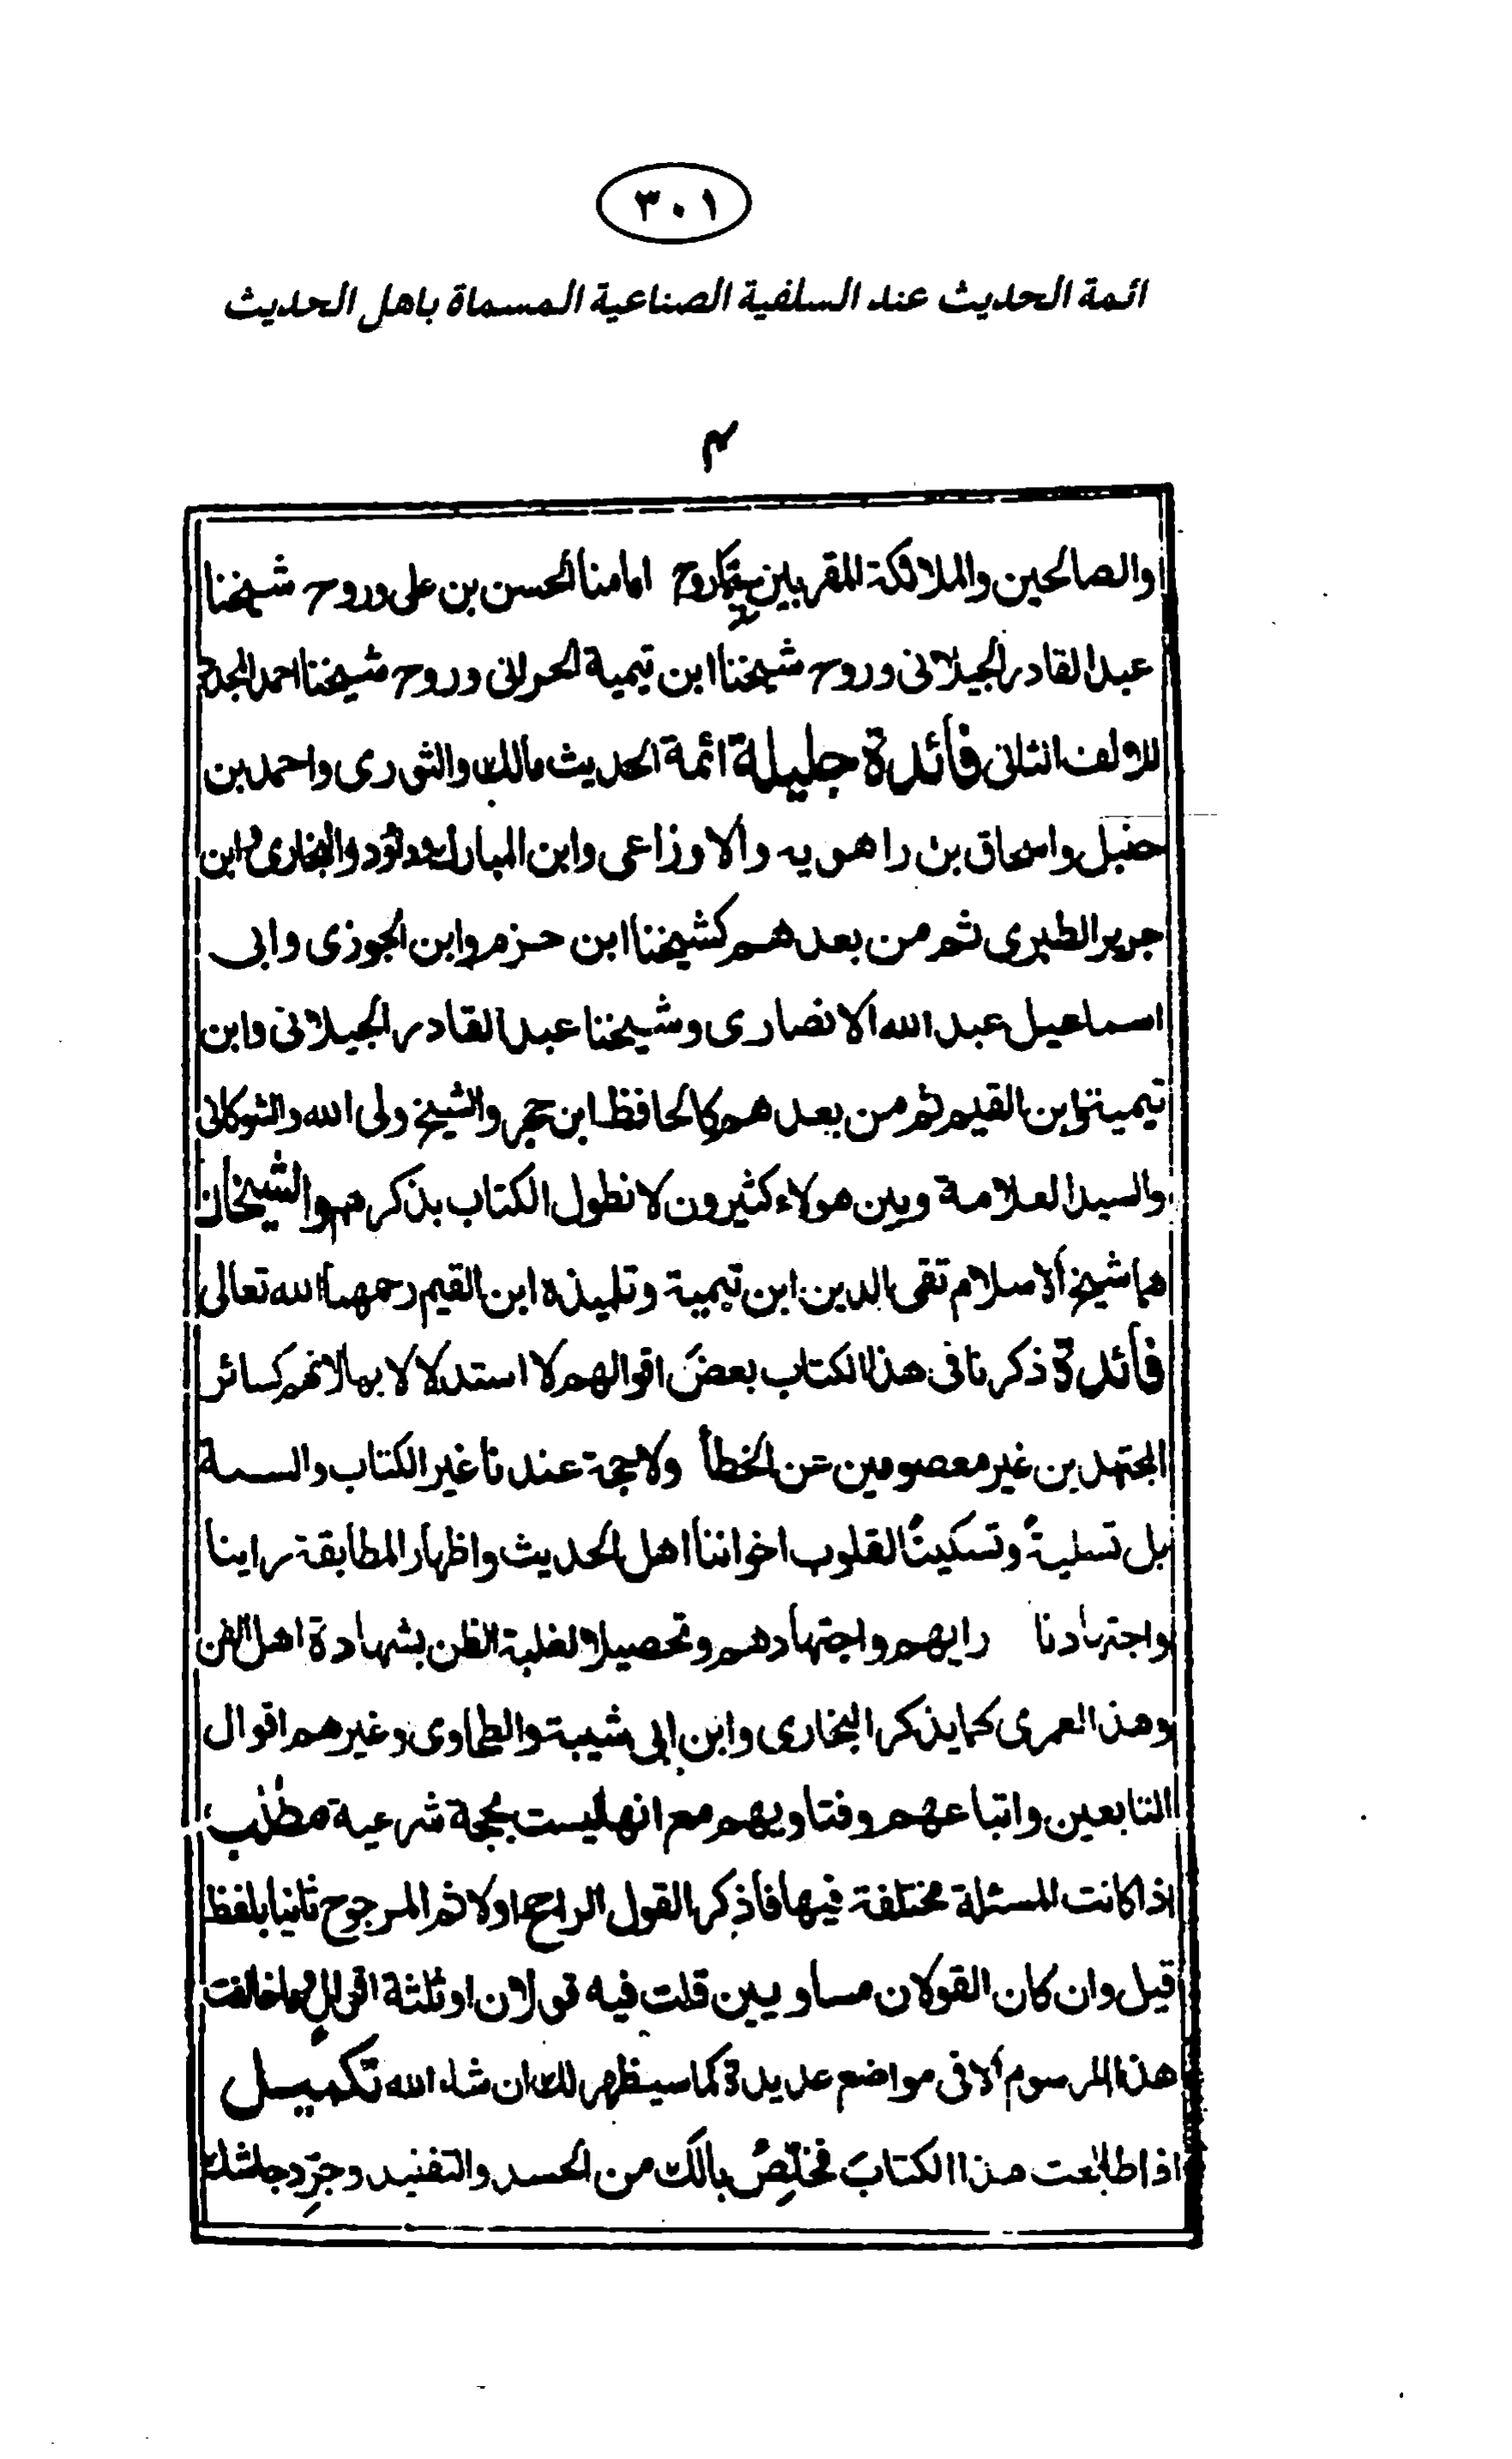 ٣٠١
ائمة الحديث عند السلفية الصناعية المسماة باهل الحديث
٣
والصالحين والملائكة المقربين سيما روح امامنا الحسن بن على وروح شيخنا
عبد القادر الجيلانى وروح شيخنا ابن تيمية الحرانى وروح شيخنا احمد المجدد
للالف الثانى فائدة جليلة ائمة الحديث مالك والثورى واحمد بن
حنبل واسحاق بن راهويه والاوزاعى وابن المبارك وداؤد والبخارى وابن
جرير الطبرى ثم من بعدهم كشيخنا ابن حزم وابن الجوزى وابى
اسماعيل عبد الله الانصارى وشيخنا عبد القادر الجيلانى وابن
تيمية وابن القيم ثم من بعدهم كالحافظ ابن حجر والشيخ ولى الله والشوكانى
والسيد العلامة وبين هولاء كثيرون لا نطول الكتاب بذكرهم والشيخان
هما شيخ الاسلام تقى الدين ابن تيمية وتلميذه ابن القيم رحمهما الله تعالى
فائدة ذكرنا فى هذا الكتاب بعض اقوالهم لا استدلالا بها لانهم كسائر
المجتهدين غير معصومين عن الخطأ ولا حجة عندنا غير الكتاب والسنة
بل تسليةً وتسكينًا لقلوب اخواننا اهل الحديث واظهار المطابقة راينا
واجتهادنا رايهم واجتهادهم وتحصيلا لغلبة الظن بشهادة اهل الفن
وهذا لعمرى كما يذكر البخارى وابن ابى شيبة والطحاوى وغيرهم اقوال
التابعين واتباعهم وفتاويهم مع انها ليست بحجة شرعية
اذا كانت المسئلة مختلفة فيها فاذكر القول الراجح اولا ثم المرجوح ثانيا بلفظ
قيل وان كان القولان مساويين قلت فيه قولان او ثلثة اقوال وما خالفت
هذا المرسوم الا فى مواضع عديدة كما سيظهر لك ان شاء الله تكميل
اذا طالعت هذا الكتابَ فخلِّصْ بالك من الحسد والتفنيد وجرِّد جاشك